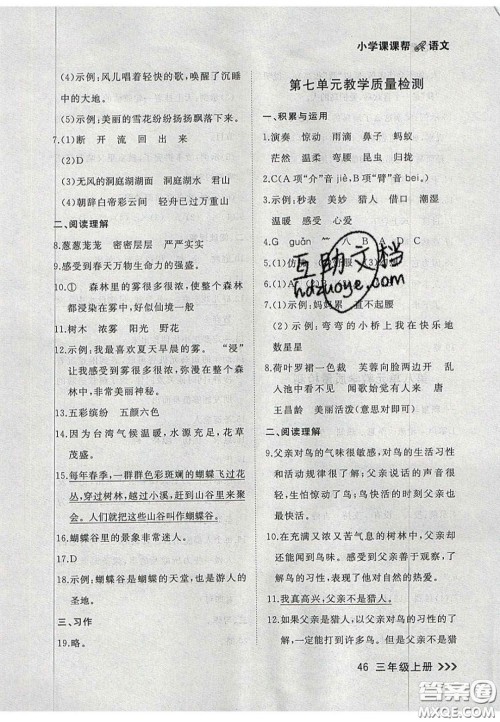 小学课课帮 语文
(4)示例:风儿唱着轻快的歌,唤醒了沉睡
中的大地。
(5)示例:美丽的雪花纷纷扬扬飘落下来。
7.(1)断 开 流 回 出 来
(2)D
(3)无风的洞庭湖湖面 洞庭湖水 君山
(4)朝辞白帝彩云间 轻舟已过万重山
二、阅读理解
8.葱葱茏茏 密密层层 严严实实
9.感受到春天万物生命力的强盛。
10.① 森林里的雾很多很浓,使整个森林
都浸染在雾中,好似仙境一般
11.树木 浓雾 阳光 野花
12.示例:我最喜欢夏天早晨的雾。“浸”
让我感受到雾很多很浓,弥漫在整个森
林中,非常美丽神秘。
13.五彩缤纷 五颜六色
14.因为台湾气候温暖,水源充足,花草
茂盛。
15.每年春季,一群群色彩斑斓的蝴蝶飞过花
丛,穿过树林,越过小溪,赶到山谷里来聚
会。人们就把这些山谷叫作蝴蝶谷。
16.蝴蝶谷里的景象非常迷人。
17.D
18.示例:蝴蝶谷是蝴蝶的天堂,也是游人的
圣地。
三、习作
19.略。
第七单元教学质量检测
一、积累与运用
1.演奏 惊动 雨滴 鼻子 蚂蚁
茫然 温柔 弯腰 昆虫 归拢
2.C(A项“介”音jiè,B项“臂”音bei)
3.示例:秒表 美妙 猎人 借口 潮湿
温暖 感动 心爱
4.G guān
数星星
8.荷叶罗裙一色裁 芙蓉向脸两边开 乱
入池中看不见 闻歌始觉有人来 唐
王昌龄 美丽活泼(意思对即可)
二、阅读理解
9.父亲对鸟的气味很敏感,对鸟的生活习
性和活动规律很了解,父亲说话的声音很
轻,生怕惊动鸟,从中能感受到父亲十分
快活。
10.在充满又浓又苦气息的树林中,父亲却
还能闻到鸟味。感受到父亲善于观察,了
解了鸟的生活习性,感受到父亲是个爱鸟
的人。
11.我真高兴,父亲不是猎人。
12.示例:如果是猎人,以父亲对鸟的习性的了
解,一定能打到许多鸟。但是父亲不是猎
互助文档
hdzuoye.com
46 三年级上册 >>>
答案圈
MXQE.COM